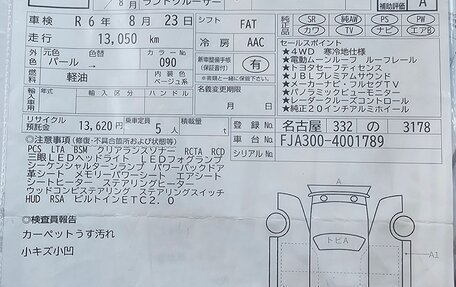 8月 ランドクルーザー
補助評価 A
車検 R 6年 8月 23日 シフト FAT
純正品 SR 純AW PS PW
カワ TV ナビ エアB
走行 13,050 km 冷房 AAC
セールスポイント
元色 パール→ 色替 カラーNo 090
新車整備手帳(保証書付) 有
燃料 軽油 内装色 ベージュ系
名義変更期限
輸入車用 輸入区分 ハンドル
月 日
★4WD 寒冷地仕様
★電動ムーンルーフ ルーフレール
★トヨタセーフティセンス
★JBLプレミアムサウンド
★メーカーナビ フルセグTV
★パノラミックビューモニター
★レーダークルーズコントロール
★純正20インチアルミホイール
リサイクル預託金 13,620円 乗車定員 5人 積載量 t
登録No 名古屋 332 の 3178
車台No FJA300-4001789
シリアルNo
◎注意事項(修復・不具合箇所および状態等)
PCS LTA BSM クリアランスソナー RCTA RCD
三眼LEDヘッドライト LEDフォグランプ
シーケンシャルターンランプ パワーバックドア
革シート メモリーパワーシート エアシート
シートヒーター ステアリングヒーター
ウッドコンビステアリング ステアリングスイッチ
HUD RSA ビルトインETC2.0
◎検査員報告
カーペットうす汚れ
小キズ小凹
A
トビA
A1